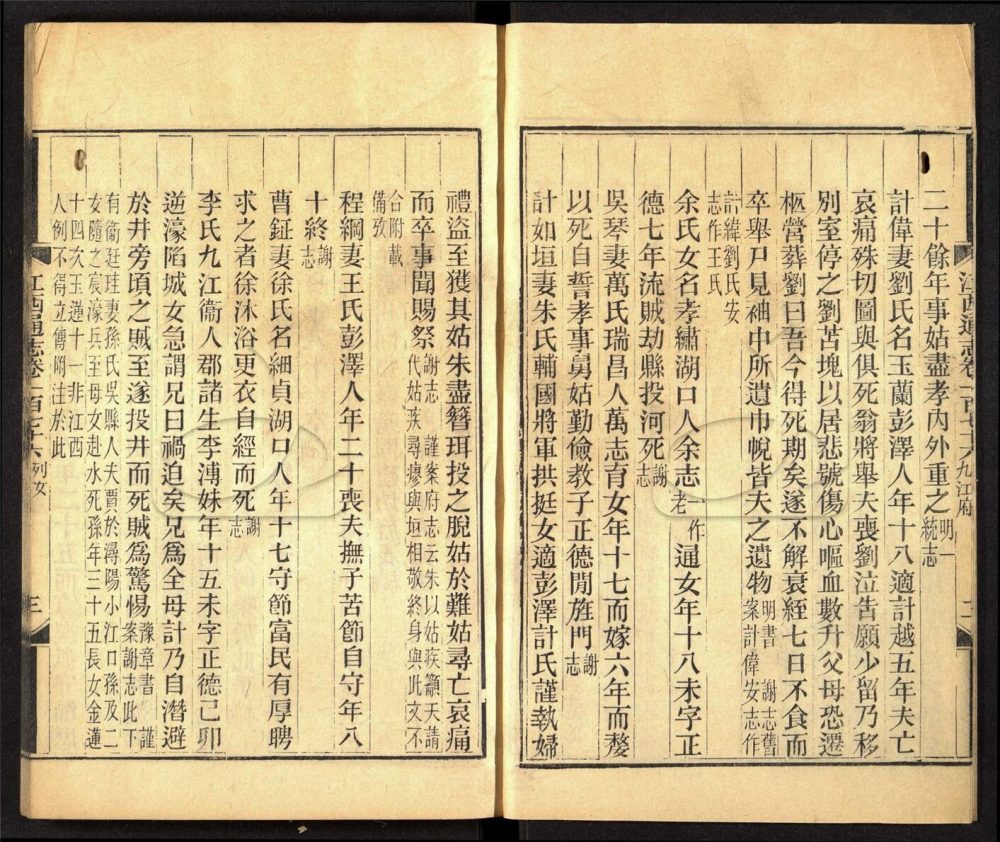 二十餘年事姑盡孝內外重之明一統志
計偉妻劉氏名玉蘭彭澤人年十八適計越五年夫亡
哀痛殊切圖與俱死翁將舉夫喪劉泣告願少留乃移
別室停之劉苫塊以居悲號傷心嘔血數升父母恐遷
柩營葬劉曰吾今得死期矣遂不解衰絰七日不食而
卒舉尸見袖中所遺巾帨皆夫之遺物明書 謝志舊案計偉安志作
計緯劉氏安志作王氏
余氏女名孝繡湖口人余志一作老通女年十八未字正
德七年流賊劫縣投河死謝志
吳琴妻萬氏瑞昌人萬志育女年十七而嫁六年而嫠
以死自誓孝事舅姑勤儉教子正德間旌門謝志
計如垣妻朱氏輔國將軍拱挺女適彭澤計氏謹執婦
江西通志卷一百七十六 九江府 二
禮盜至獲其姑朱盡簪珥投之脫姑於難姑尋亡哀痛
而卒事聞賜祭謝志 謹案府志云朱以姑疾籲天請代姑疾尋瘳與垣相敬終身與此文不
合附載備攷
程綱妻王氏彭澤人年二十喪夫撫子苦節自守年八
十終謝志
曹鉦妻徐氏名細貞湖口人年十七守節富民有厚聘
求之者徐沐浴更衣自經而死謝志
李氏九江衞人郡諸生李溥妹年十五未字正德己卯
逆濠陷城女急謂兄曰禍迫矣兄爲全母計乃自潛避
於井旁頃之賊至遂投井而死賊爲驚惕豫章書 謹案謝志此下
有衞廷珪妻孫氏吳縣人夫賈於潯陽小江口孫及二女隨之宸濠兵至母女赴水死孫年三十五長女金蓮
十四次玉蓮十一非江西人例不得立傳附注於此
江西通志卷一百七十六 列女 三